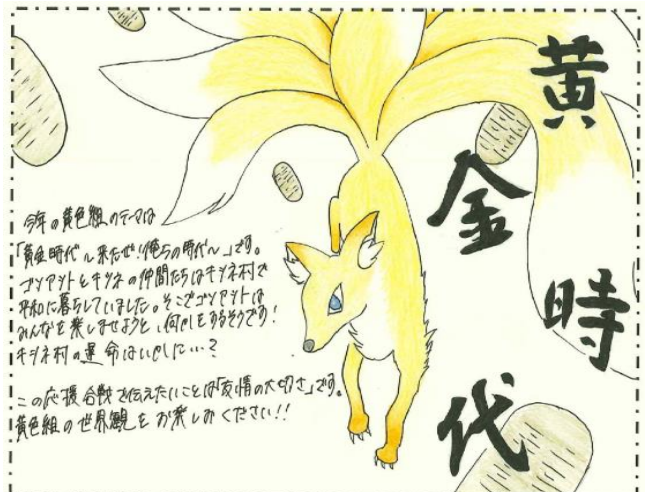 黄金時代
今年の黄色組のテーマは
「黄金時代〜来たぜ!俺らの時代〜」です。
ゴンアントとキツネの仲間たちはキツネ村で
平和に暮らしていました。そこでゴンアントは
みんなを楽しませようと、何かをするそうです!
キツネ村の運命はいかに…?
この応援合戦で伝えたいことは「友情の大切さ」です。
黄色組の世界観をお楽しみください!!